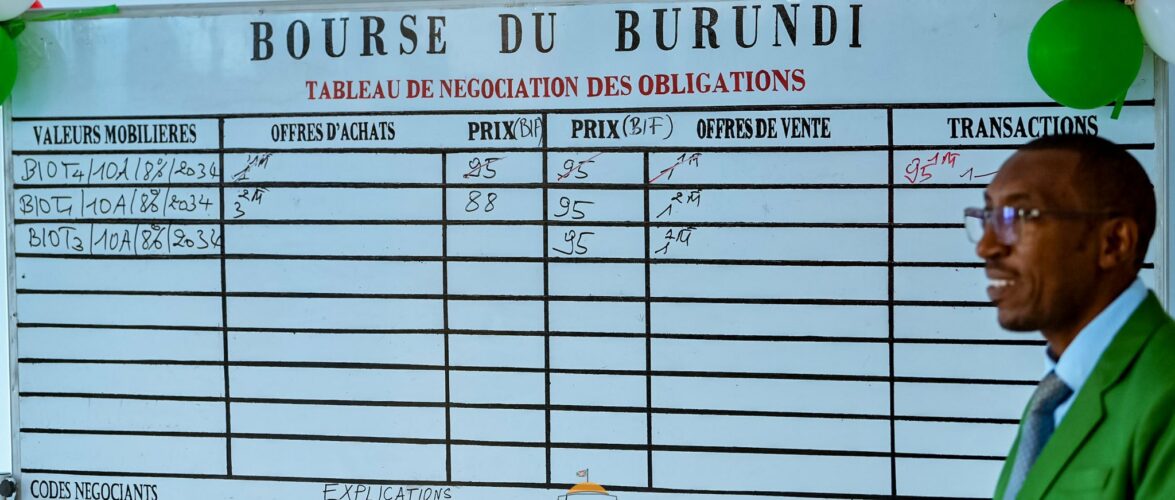 BOURSE DU BURUNDI
TABLEAU DE NEGOCIATION DES OBLIGATIONS
VALEURS MOBILIERES OFFRES D'ACHATS PRIX (BIF) PRIX (BIF) OFFRES DE VENTE TRANSACTIONS
BIOT4/10A/8%/2034 95 95 95
BIOT1/10A/8%/2034 3 88 95 1
BIOT3/10A/8%/2034 95 1
CODES NEGOCIANTS EXPLICATIONS